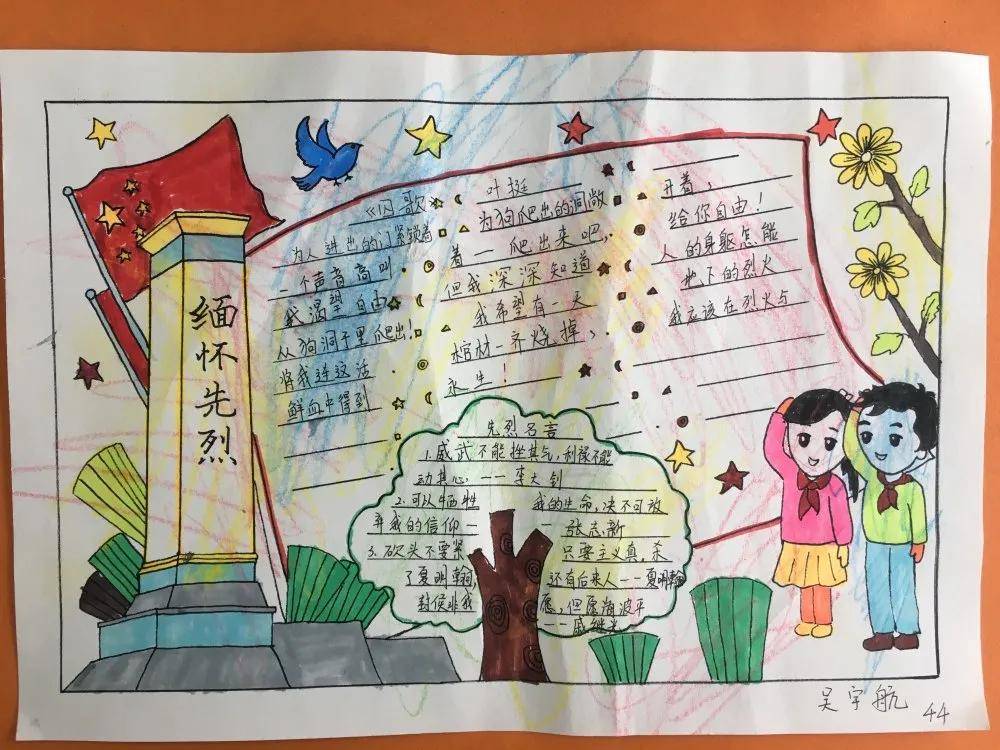 缅怀先烈
《囚歌》 叶挺
为人进出的门紧锁着
为狗爬出的洞敞
开着，
一个声音高叫
着——爬出来吧，
给你自由！
我渴望自由
但我深深知道
人的身躯怎能
从狗洞子里爬出！
我希望有一天
地下的烈火
将我连这活
棺材一齐烧掉，
我应该在烈火与
鲜血中得到
永生！
先烈名言
1.威武不能挫其气，利禄不能
动其心，——李大钊
2.可以牺牲 我的生命，决不可放
弃我的信仰— 张志新
3.砍头不要紧 只要主义真，杀
了夏明翰 还有后来人——夏明翰
封侯非我 愿，但愿海波平
——戚继光
吴宇航 44